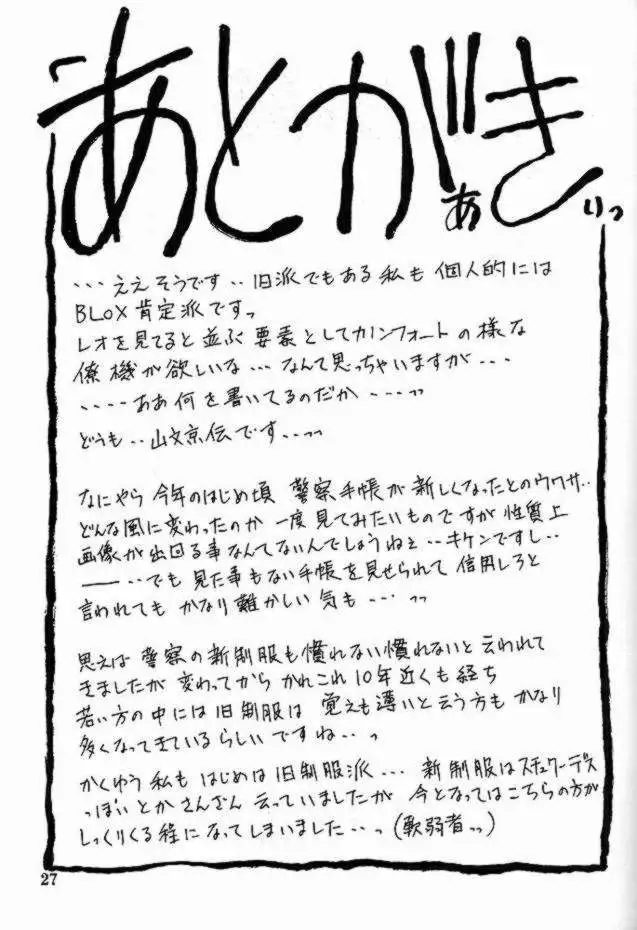 あとがき
ぁ りっ
・・・ええそうです・・旧派でもある私も個人的には
BLOX肯定派ですっ
レオを見てると並ぶ要素としてカノンフォートの様な
僚機が欲しいな・・・なんて思っちゃいますが・・・
・・・・ああ何を書いてるのだか・・・・っっ
どうも・・山文京伝です・・・っっ
なにやら今年のはじめ頃 警察手帳が新しくなったとのウワサ・・
どんな風に変わったのか一度見てみたいものですが性質上
画像が出回る事なんてないんでしょうねぇ・・キケンですし・・
――・・でも見た事もない手帳を見せられて信用しろと
言われてもかなり難かしい気も・・・・っっ
思えば警察の新制服も慣れない慣れないと云われて
きましたが変わってからかれこれ10年近くも経ち
若い方の中には旧制服は覚えも薄いと云う方もかなり
多くなってきているらしいですね・・・っ
かくゆう私もはじめは旧制服派・・・新制服はスチュワーデス
っぽいとかさんざん云っていましたが今となってはこちらの方が
しっくりくる程になってしまいました・・・っ(軟弱者っっ)
27